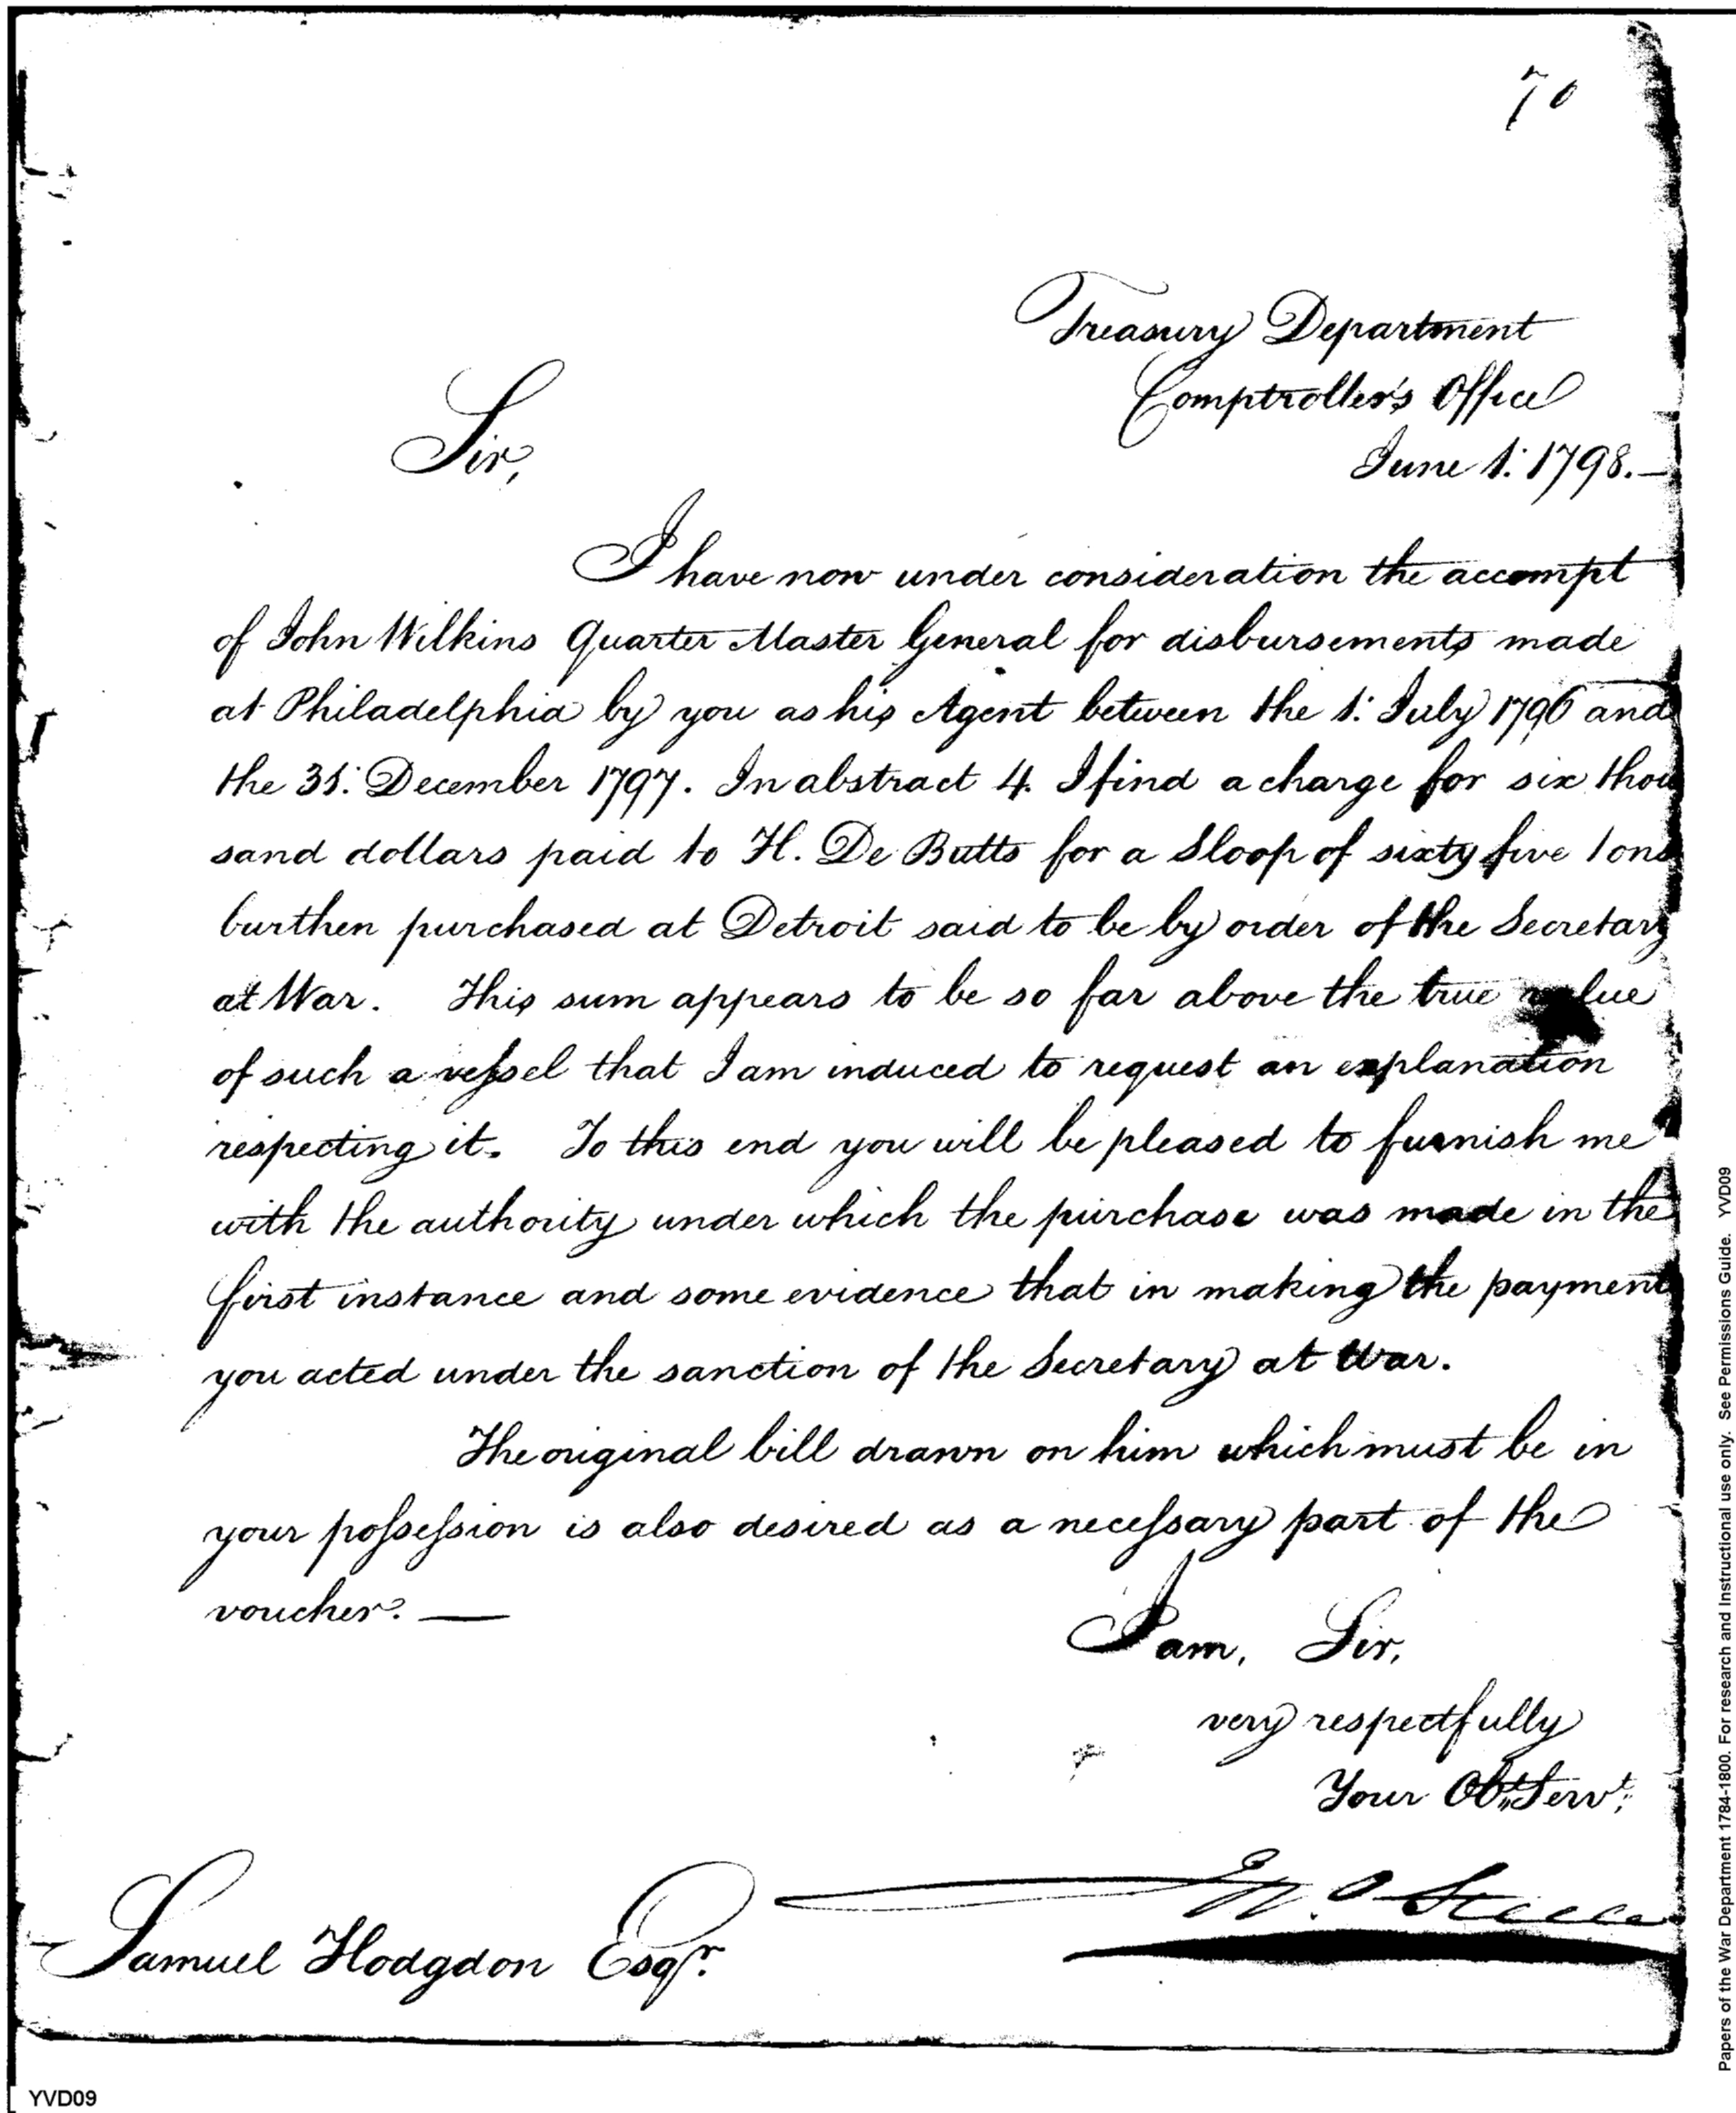 70
Treasury Department
Comptroller's Office
June 1: 1798.—
Sir,
I have now under consideration the accompt
of John Wilkins Quarter Master General for disbursements made
at Philadelphia by you as his Agent between the 1: July 1796 and
the 31: December 1797. In abstract 4. I find a charge for six thou
sand dollars paid to H. De Butts for a Sloop of sixty five tons
burthen purchased at Detroit said to be by order of the Secretary
at War. This sum appears to be so far above the true value
of such a vessel that I am induced to request an explanation
respecting it. To this end you will be pleased to furnish me
with the authority under which the purchase was made in the
first instance and some evidence that in making the payment
you acted under the sanction of the Secretary at War.
The original bill drawn on him which must be in
your possession is also desired as a necessary part of the
voucher. —
I am, Sir,
very respectfully
Your Obt Servt;
Jno Steele
Samuel Hodgdon Esqr.
YVD09
Papers of the War Department 1784-1800. For research and instructional use only. See Permissions Guide. YVD09